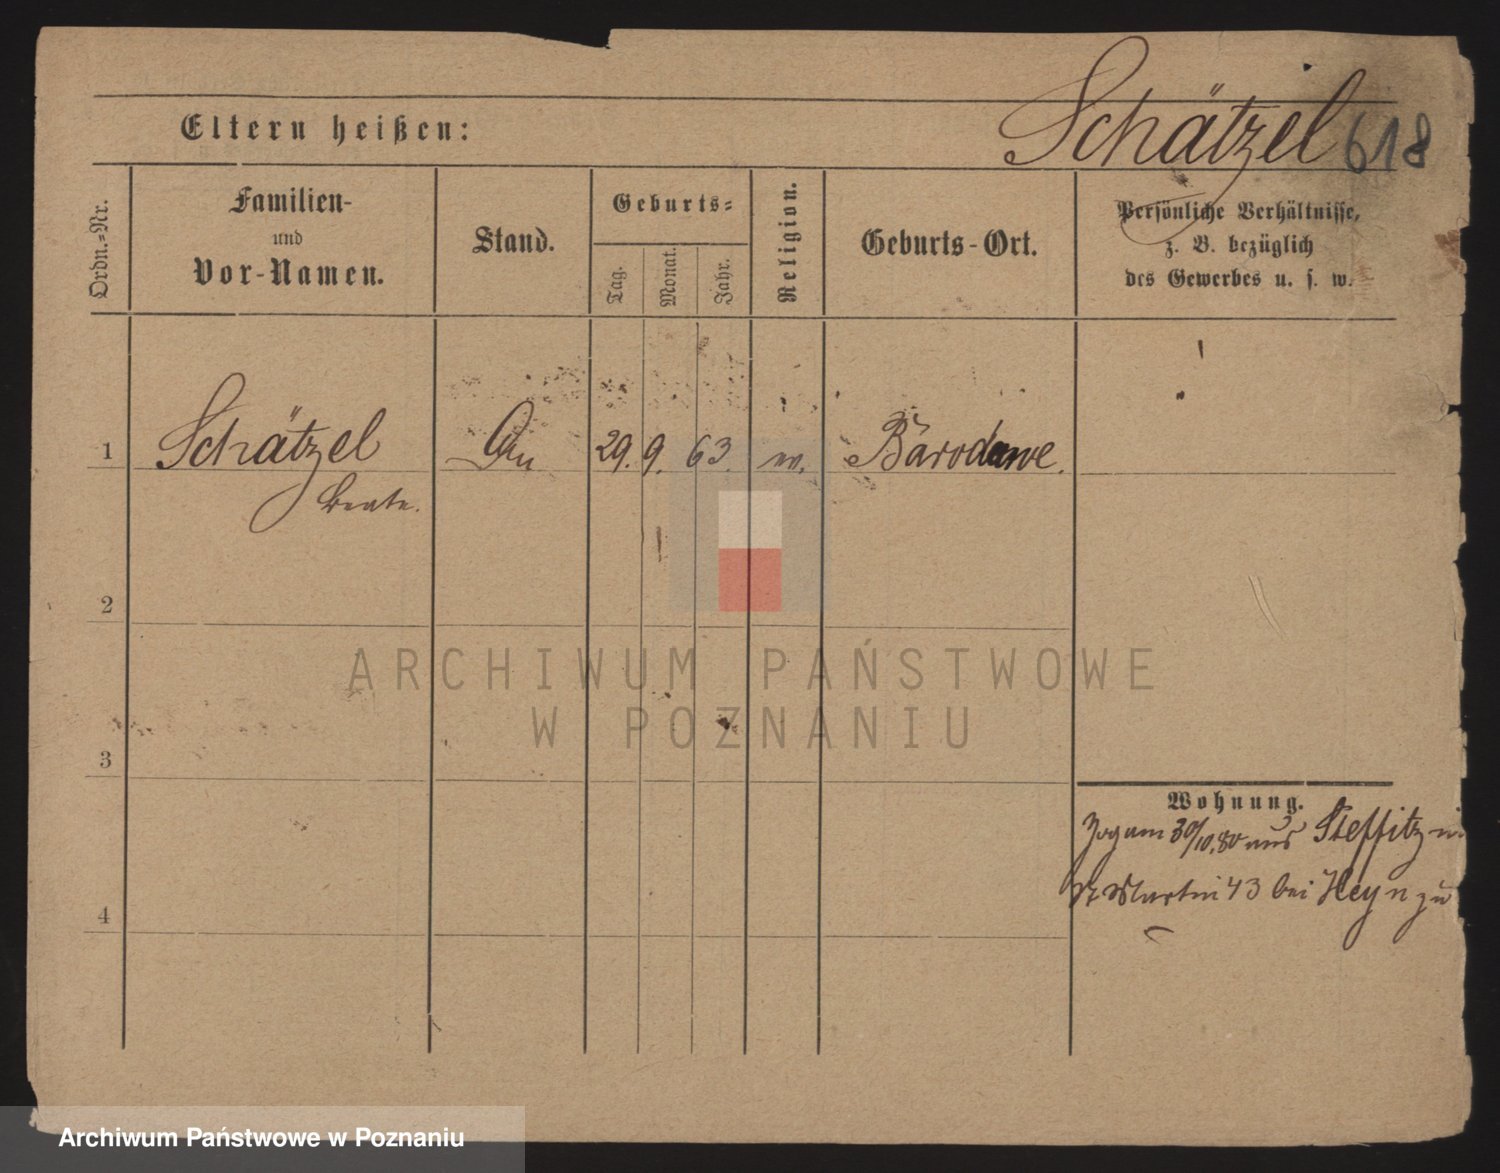 Schätzel 618
Eltern heißen:
Ordn.-Nr.
Familien-
und
Vor-Namen.
Stand.
Geburts-
Tag.
Monat.
Jahr.
Religion.
Geburts-Ort.
Persönliche Verhältnisse,
z. B. bezüglich
des Gewerbes u. s. w.
1 Schätzel 29. 9. 63.
Beate.
2
3
4
Wohnung.
Zog am 30/10.80 aus Steffitz
St Martin 43 bei Heyn zu
ARCHIWUM PAŃSTWOWE
W POZNANIU
Archiwum Państwowe w Poznaniu